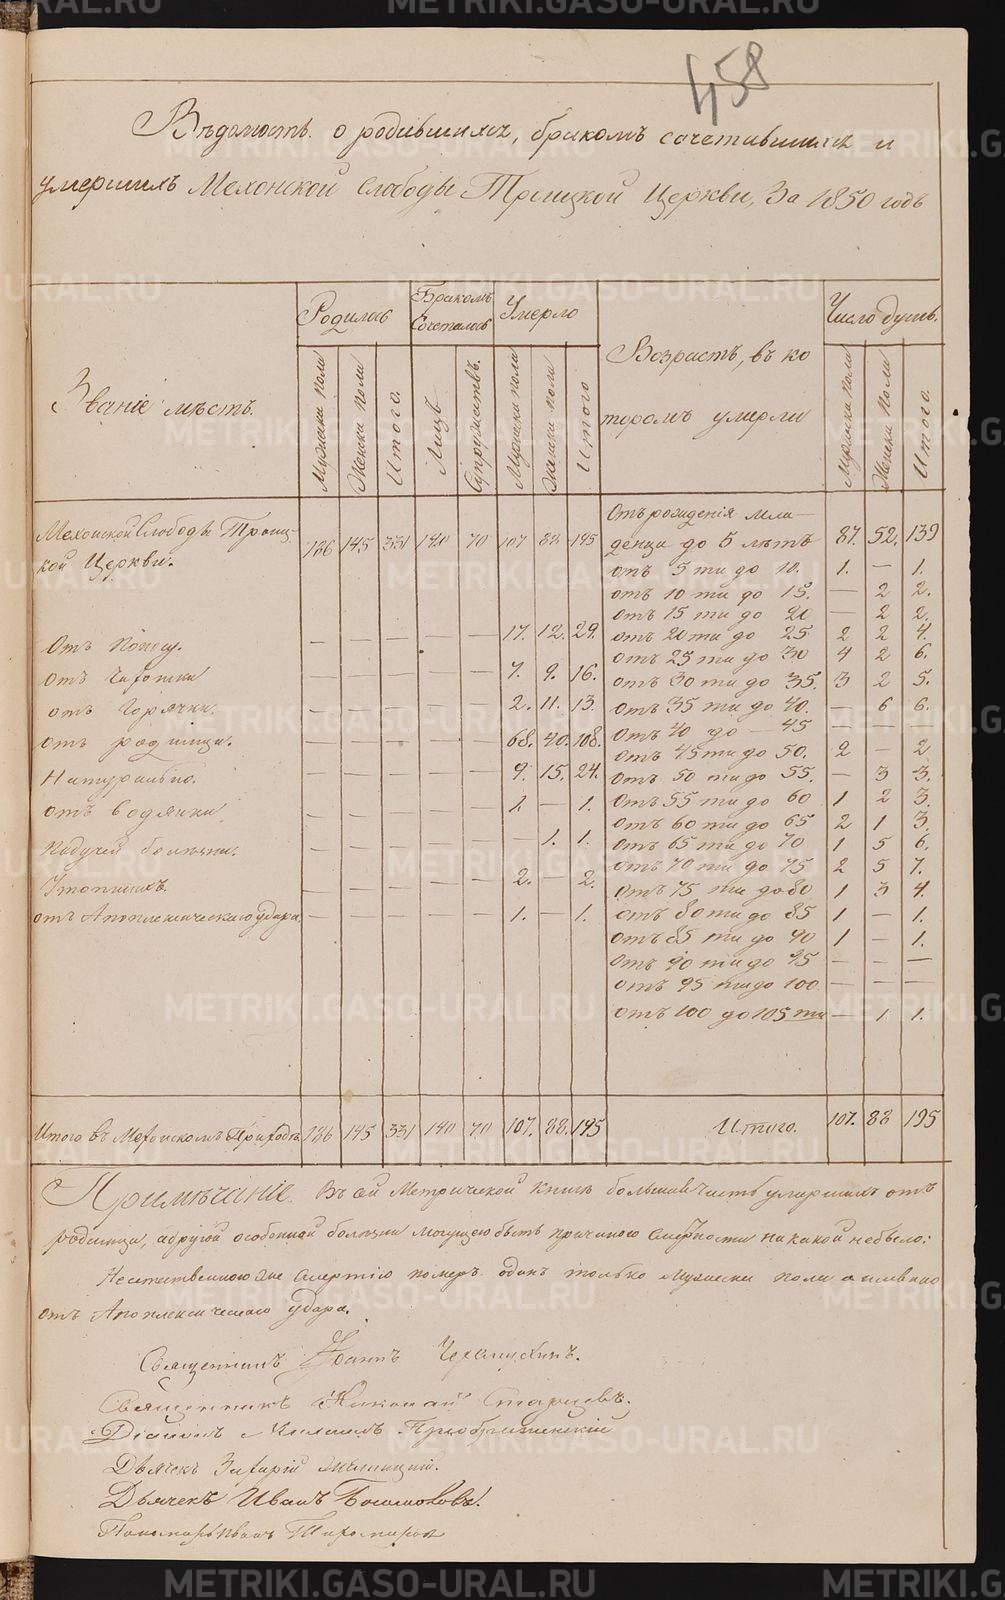 458
Вѣдомость о родившихся, бракомъ сочетавшихся и
умершихъ Мехонской Слободы Троицкой Церкви, За 1850 годъ
Званіе мѣстъ. Родилось Бракомъ Сочеталось Умерло Возрастъ, въ которомъ умерли Число душъ.
Мужеска пола Женска пола Итого. Лицъ Супружествъ. Мужеска пола Женска пола Итого Мужеска пола Женска пола Итого.
Мехонской Слободы Троиц-
кой Церкви. 186 145 331 140 70 107 88 195
Отъ рожденія мла-
денца до 5 лѣтъ 87. 52. 139
отъ 5 ти до 10. 1. — 1.
отъ 10 ти до 15. — 2 2.
отъ 15 ти до 20 — 2 2.
Отъ поносу. — — — — — 17. 12. 29.
отъ 20 ти до 25 2 2 4.
отъ 25 ти до 30 4 2 6.
отъ Чахотки — — — — — 7. 9. 16.
отъ 30 ти до 35. 3 2 5.
отъ Горячки. — — — — — 2. 11. 13.
отъ 35 ти до 40. — 6 6.
отъ 40 до 45 — — —
отъ родимца. — — — — 68. 40. 108.
отъ 45 ти до 50. 2 — 2
Натурально. — — — — — 9. 15. 24.
отъ 50 ти до 55. — 3 3.
отъ водянки — — — — — 1. — 1.
отъ 55 ти до 60 1 2 3.
отъ 60 ти до 65 2 1 3.
Падучей болѣзни. — — — — — — 1. 1.
отъ 65 ти до 70 1 5 6.
отъ 70 ти до 75 2 5 7.
Утопшихъ. — — — — — 2. 2.
отъ 75 ти до 80 1 3 4.
отъ Апоплексическаго удара — — — — — 1. — 1.
отъ 80 ти до 85 1 — 1.
отъ 85 ти до 90 1 — 1.
отъ 90 ти до 95 — — —
отъ 95 ти до 100 — — —
отъ 100 до 105 ти — 1 1.
Итого въ Мехонскомъ Приходѣ 186 145 331 140 70 107. 88. 195 Итого. 107. 88 195
Примѣчаніе. Въ сей Метрической книгѣ большая часть умершихъ отъ
родимца, а другой особенной болѣзни могущею быть причиною смерности никакой небыло:
Несстественною же смертію померъ одинъ только Мужеска пола а имянно
отъ Апоплексическаго удара.
Священникъ Іоаннъ
Священникъ Николай Старцевъ.
Діаконъ Преображенскій
Дьячекъ Захарій
Дьячекъ Иванъ Богомоловъ.
Пономарь Иванъ Тихомировъ
METRIKI.GASO-URAL.RU